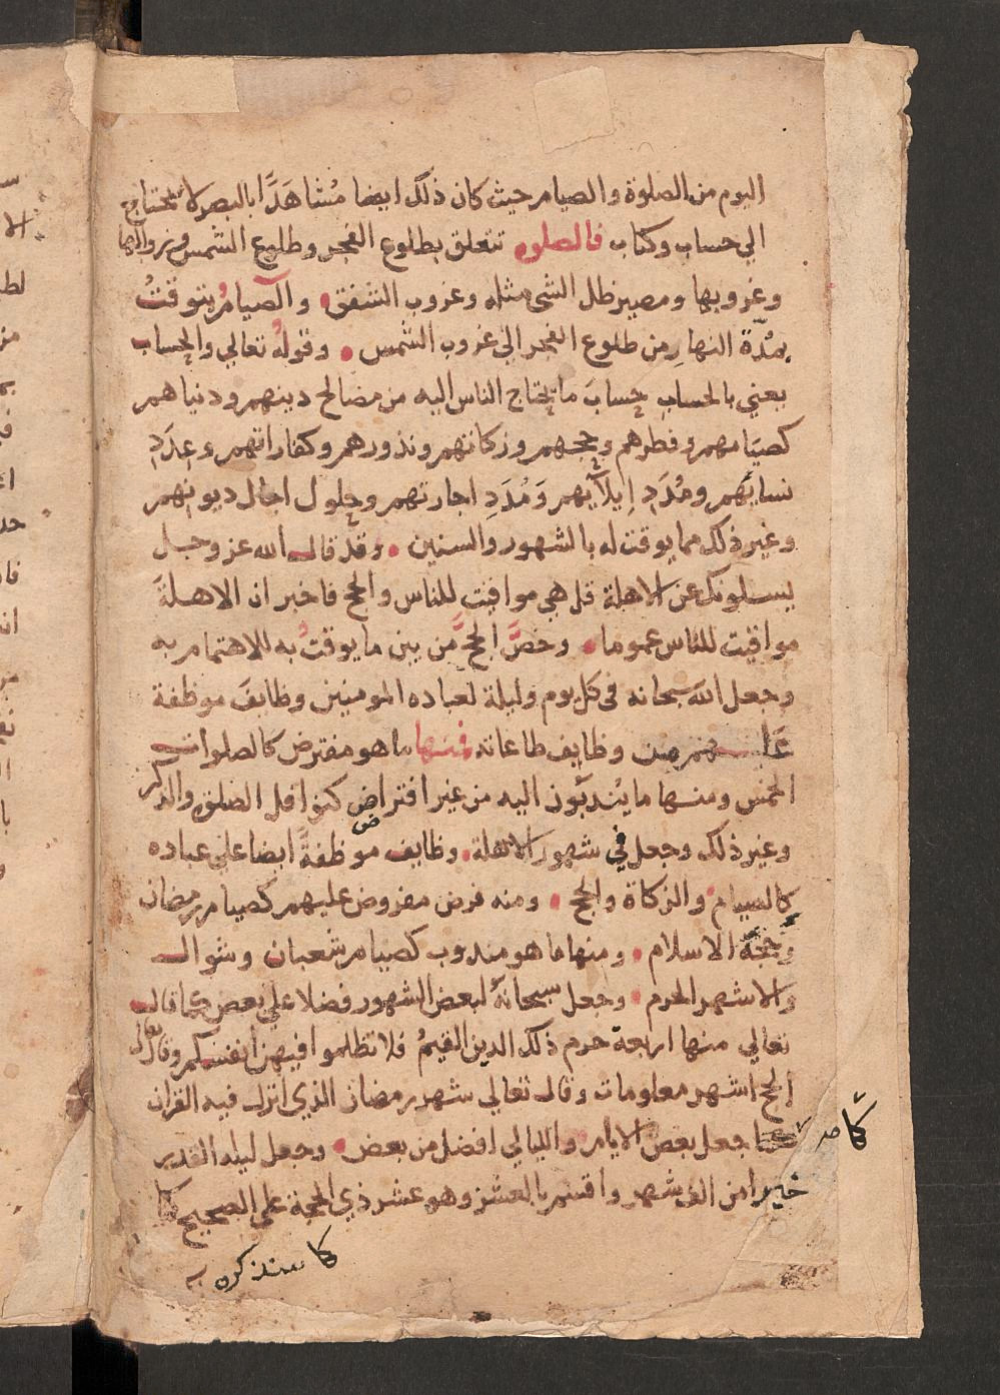 اليوم من الصلوة والصيام حيث كان ذلك ايضا مُشاهَدًا بالبصر لا يحتاج
الي حساب وكتاب فالصلوه تتعلق بطلوع الفجر وطلوع الشمس وزوالها
وغروبها ومصير ظل الشي مثله وغروب الشفق والصيامُ يتوقتُ
بمُدّة النهارِ من طلوع الفجر الي غروب الشمس وقولهُ تعالي والحساب
يعني بالحساب حِسابَ ما يحتاج الناس اليه من مصالح دينهم ودنياهم
كصيامهم وفطرهم وحجهم وزكاتهم ونذورهم وكفاراتهم وعِدَدِ
نسايهم ومُدَدِ إيلآيهم وَمُدَدِ اجارتهم وحلول اجال ديونهم
وغير ذلك مما يوقت له بالشهور والسنين وقد قال الله عز وجل
يسلونك عن الاهلة قل هي مواقيت للناس والحج فاخبر ان الاهلةَ
مواقيت للناس عموما وخصَّ الحجَّ من بين ما يوقتُ به للاهتمام به
وجعل الله سبحانه في كل يوم وليلة لعباده المومنين وظايفَ موظفة
عليهم من وظايف طاعاته فمنها ما هو مفترض كالصلوات
الخمس ومنها ما يُندبُون اليه من غير افتراض كنوافل الصلوة والذكر
وغير ذلك وجعل في شهور الاهلة وظايف موظفةً ايضا علي عباده
كالصيام والزكاة والحج ومنه فرض مفروض عليهم كصيام رمضان
وحجة الاسلام ومنها ما هو مندوب كصيام شعبان وشوال
والاشهر الحرم وجعل سبحانهُ لبعض الشهور فضلا علي بعض كما قال
تعالي منها اربعة حرم ذلك الدين القيمُ فلا تظلموا فيهن انفسكم وقال تعالي
الحج اشهر معلومات وقال تعالي شهر رمضان الذي انزل فيه القران
كما جعل بعض الايام والليالي افضل من بعض وجعل ليله القدر
خيرا من الف شهر واقسم بالعشر وهو عشر ذي الحجة علي الصحيح كما
كما سنذكره